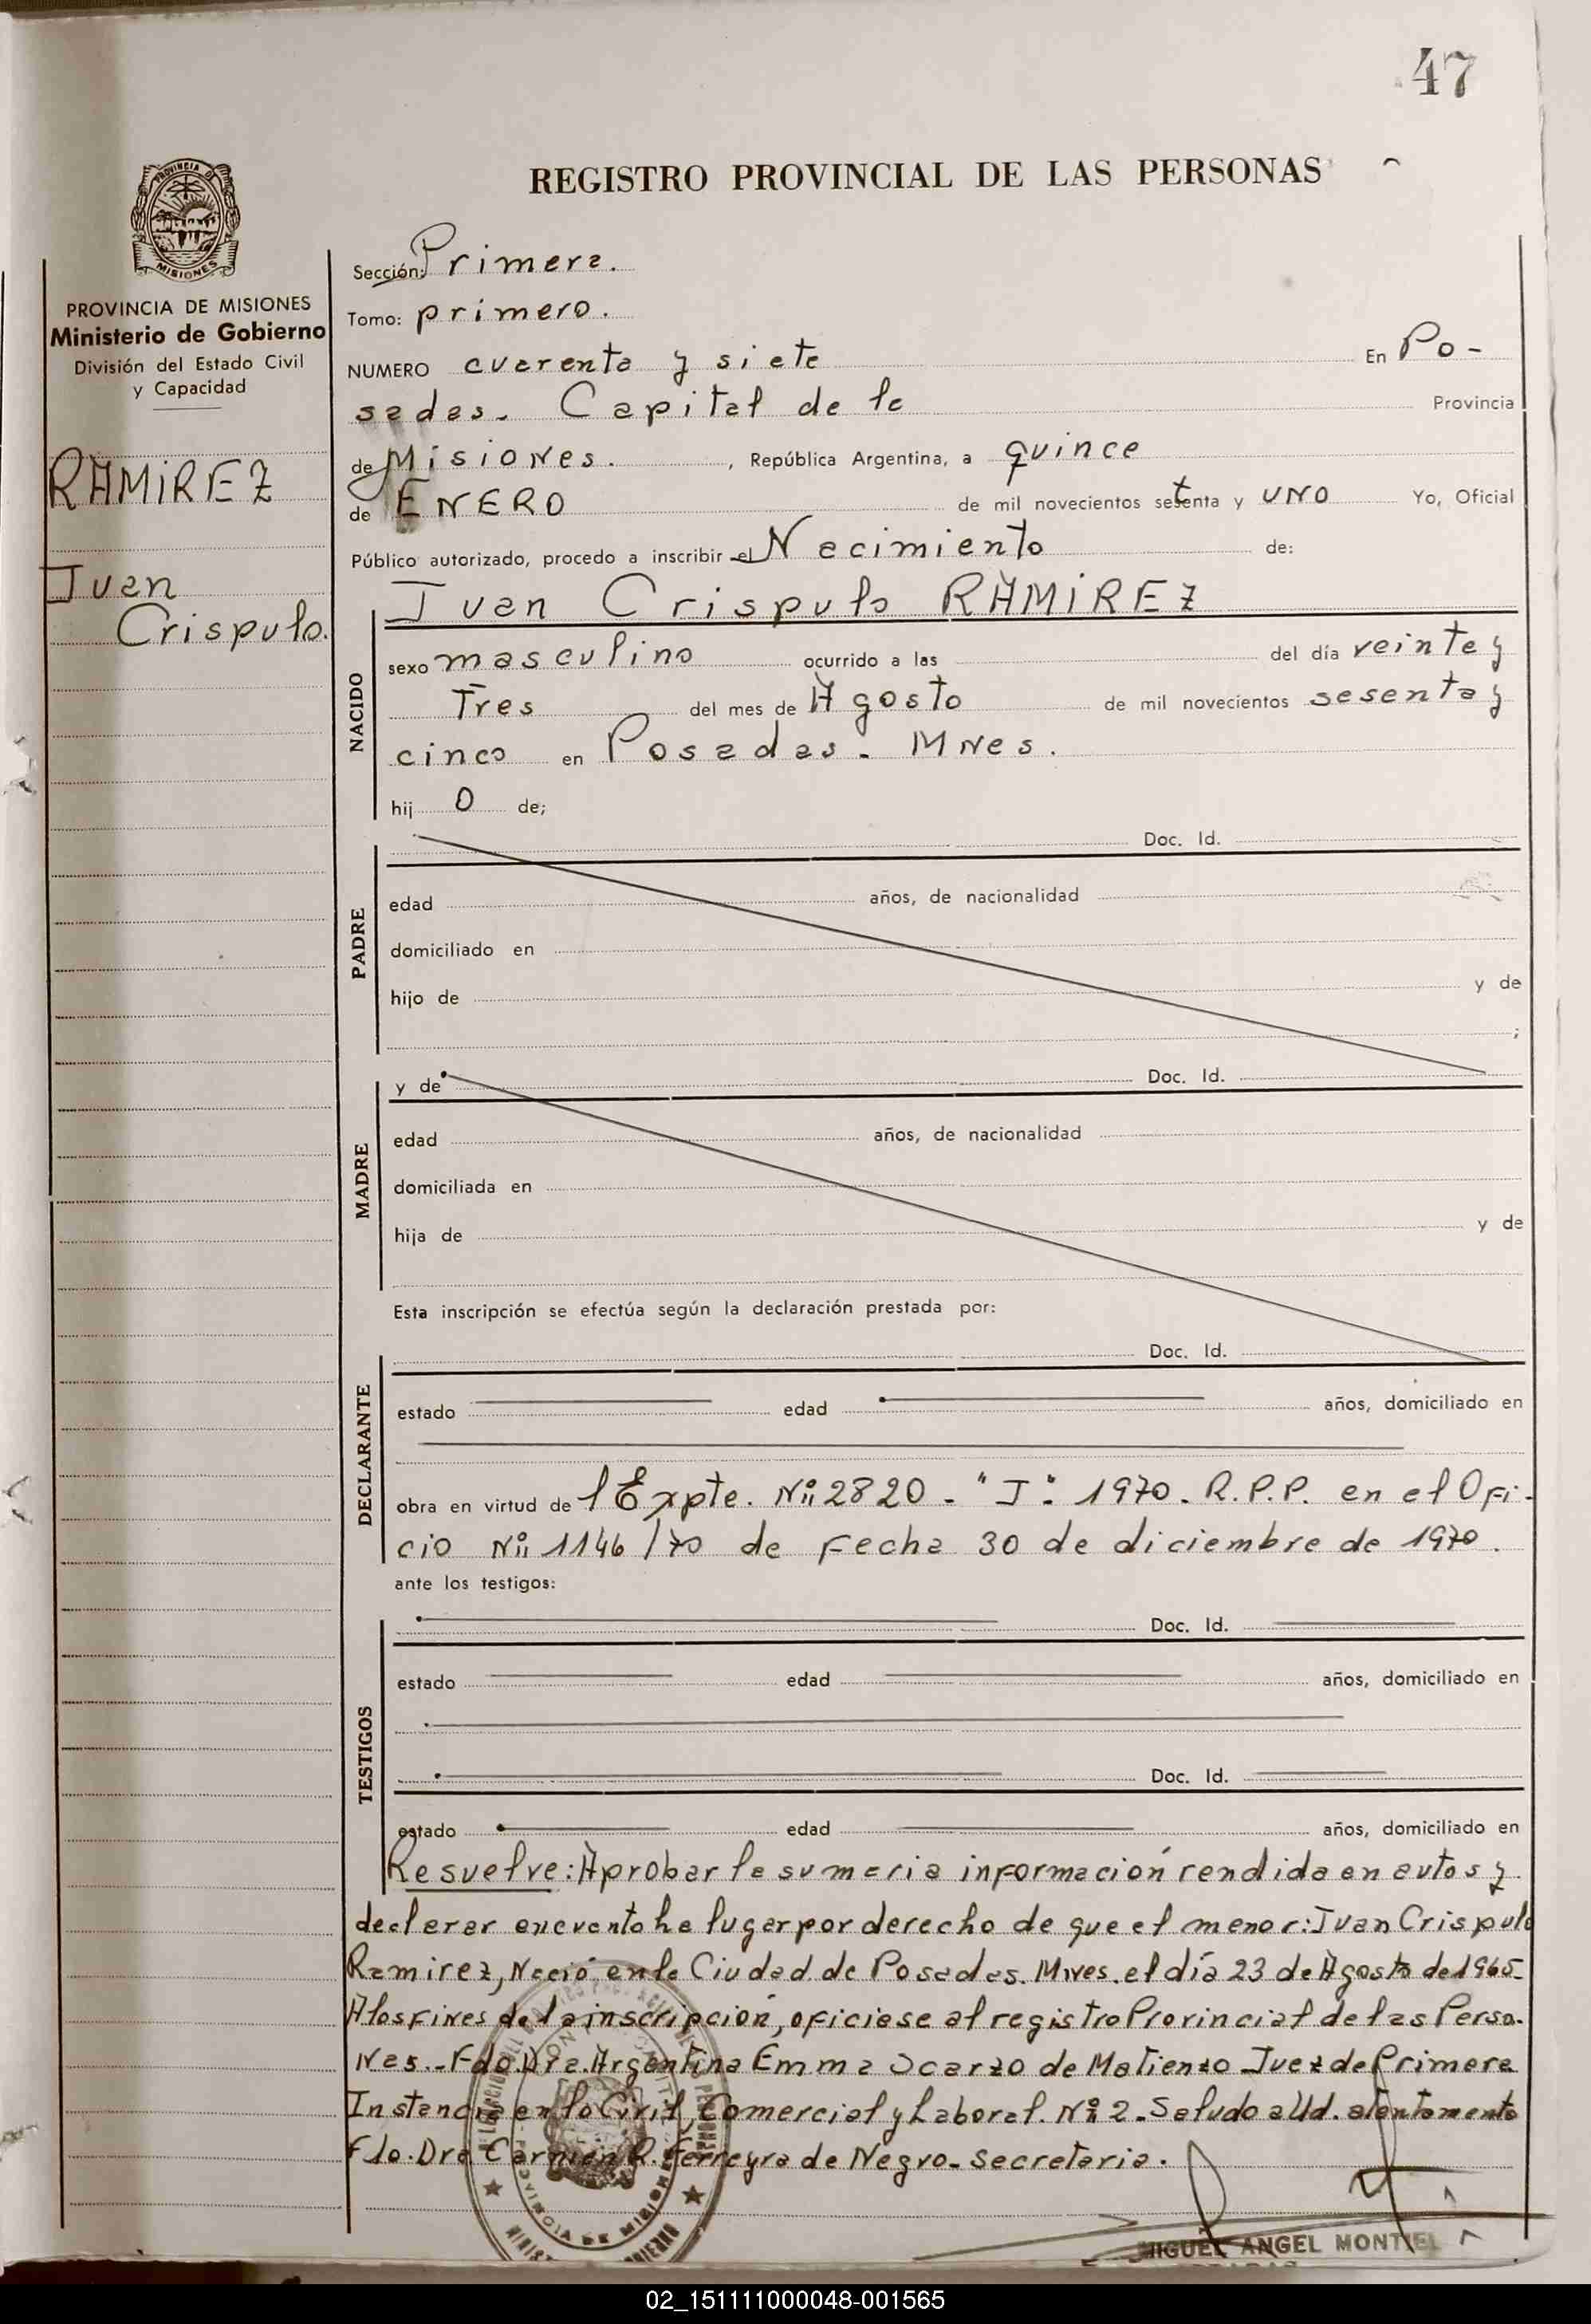 47
REGISTRO PROVINCIAL DE LAS PERSONAS
PROVINCIA DE
MISIONES
PROVINCIA DE MISIONES
Ministerio de Gobierno
División del Estado Civil
y Capacidad
RAMIREZ
Juan
Crispulo.
Sección: Primera.
Tomo: primero.
NUMERO cuarenta y siete En Po-
sadas. Capital de la Provincia
de Misiones. , República Argentina, a quince
de ENERO de mil novecientos setenta y UNO Yo, Oficial
Público autorizado, procedo a inscribir el Nacimiento de:
Juan Crispulo RAMIREZ
NACIDO
sexo masculino ocurrido a las del día veinte y
Tres del mes de Agosto de mil novecientos sesenta y
cinco en Posadas. MNes.
hij o de;
PADRE
Doc. Id.
edad años, de nacionalidad
domiciliado en
hijo de y de
;
MADRE
y de Doc. Id.
edad años, de nacionalidad
domiciliada en
hija de y de
Esta inscripción se efectúa según la declaración prestada por:
DECLARANTE
Doc. Id.
estado edad años, domiciliado en
obra en virtud de l Expte. Nº 2820. "J". 1970. R.P.P. en el Ofi-
cio Nº 1146/70 de fecha 30 de diciembre de 1970.
ante los testigos:
TESTIGOS
Doc. Id.
estado edad años, domiciliado en
Doc. Id.
estado edad años, domiciliado en
Resuelve: Aprobar la sumaria información rendida en autos y
declarar encuanto ha lugar por derecho de que el menor: Juan Crispulo
Ramirez, Nació en la Ciudad de Posadas. Mnes. el día 23 de Agosto de 1965.
A los fines de la inscripción, oficiese al registro Provincial de las Perso-
Nas.- Fdo. Dra. Argentina Emma Scarzo de Matienzo Juez de Primera
Instancia en lo Civil, Comercial y Laboral. Nº 2. Saludo a Ud. atentamente
Fdo. Dra Carmen R. Ferreyra de Negro. Secretaria.
PROVINCIA DE MISIONES
MIGUEL ANGEL MONTIEL
02_151111000048-001565